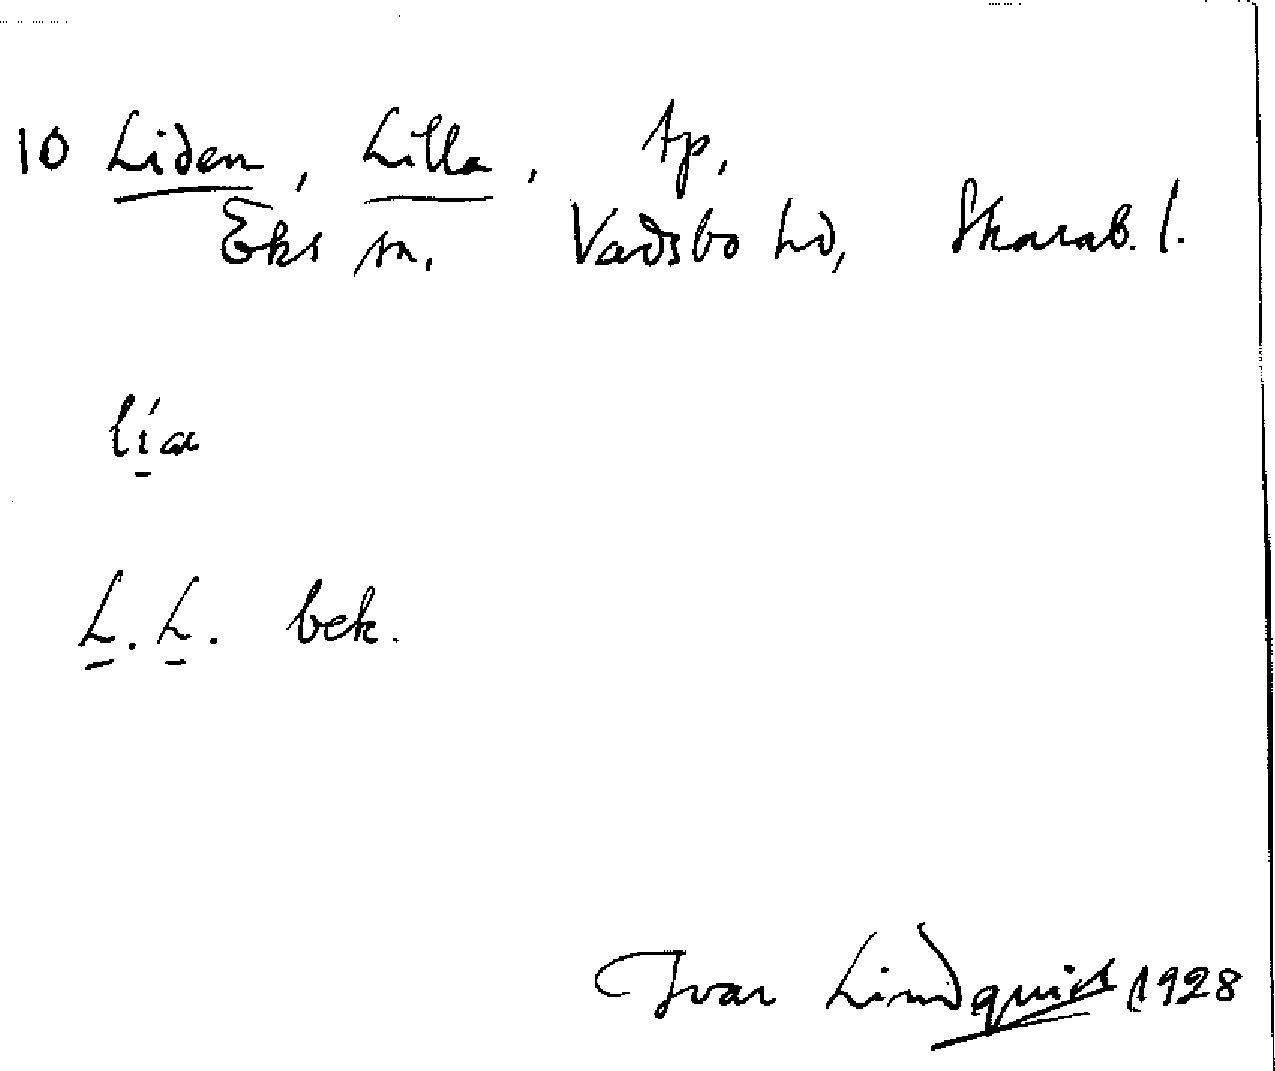 10 Liden, Lilla, tp,
Eks sn. Vadsbo hd, Skarab. l.
lía
L. L. bek.
Ivar Lindquist 1928